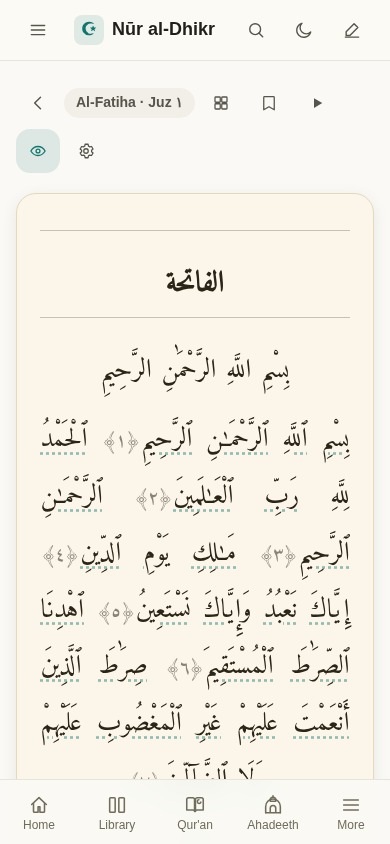 Nūr al-Dhikr
Al-Fatiha · Juz ١
الفاتحة
بِسْمِ اللَّهِ الرَّحْمَٰنِ الرَّحِيمِ
بِسْمِ ٱللَّهِ ٱلرَّحْمَـٰنِ ٱلرَّحِيمِ ﴿١﴾ ٱلْحَمْدُ
لِلَّهِ رَبِّ ٱلْعَـٰلَمِينَ ﴿٢﴾ ٱلرَّحْمَـٰنِ
ٱلرَّحِيمِ ﴿٣﴾ مَـٰلِكِ يَوْمِ ٱلدِّينِ ﴿٤﴾
إِيَّاكَ نَعْبُدُ وَإِيَّاكَ نَسْتَعِينُ ﴿٥﴾ ٱهْدِنَا
ٱلصِّرَٰطَ ٱلْمُسْتَقِيمَ ﴿٦﴾ صِرَٰطَ ٱلَّذِينَ
أَنْعَمْتَ عَلَيْهِمْ غَيْرِ ٱلْمَغْضُوبِ عَلَيْهِمْ
وَلَا ٱلضَّآلِّينَ
Home
Library
Qur'an
Ahadeeth
More